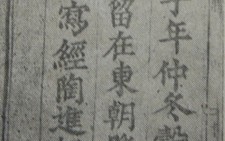 子年仲冬
留在東朝
寫經陶進